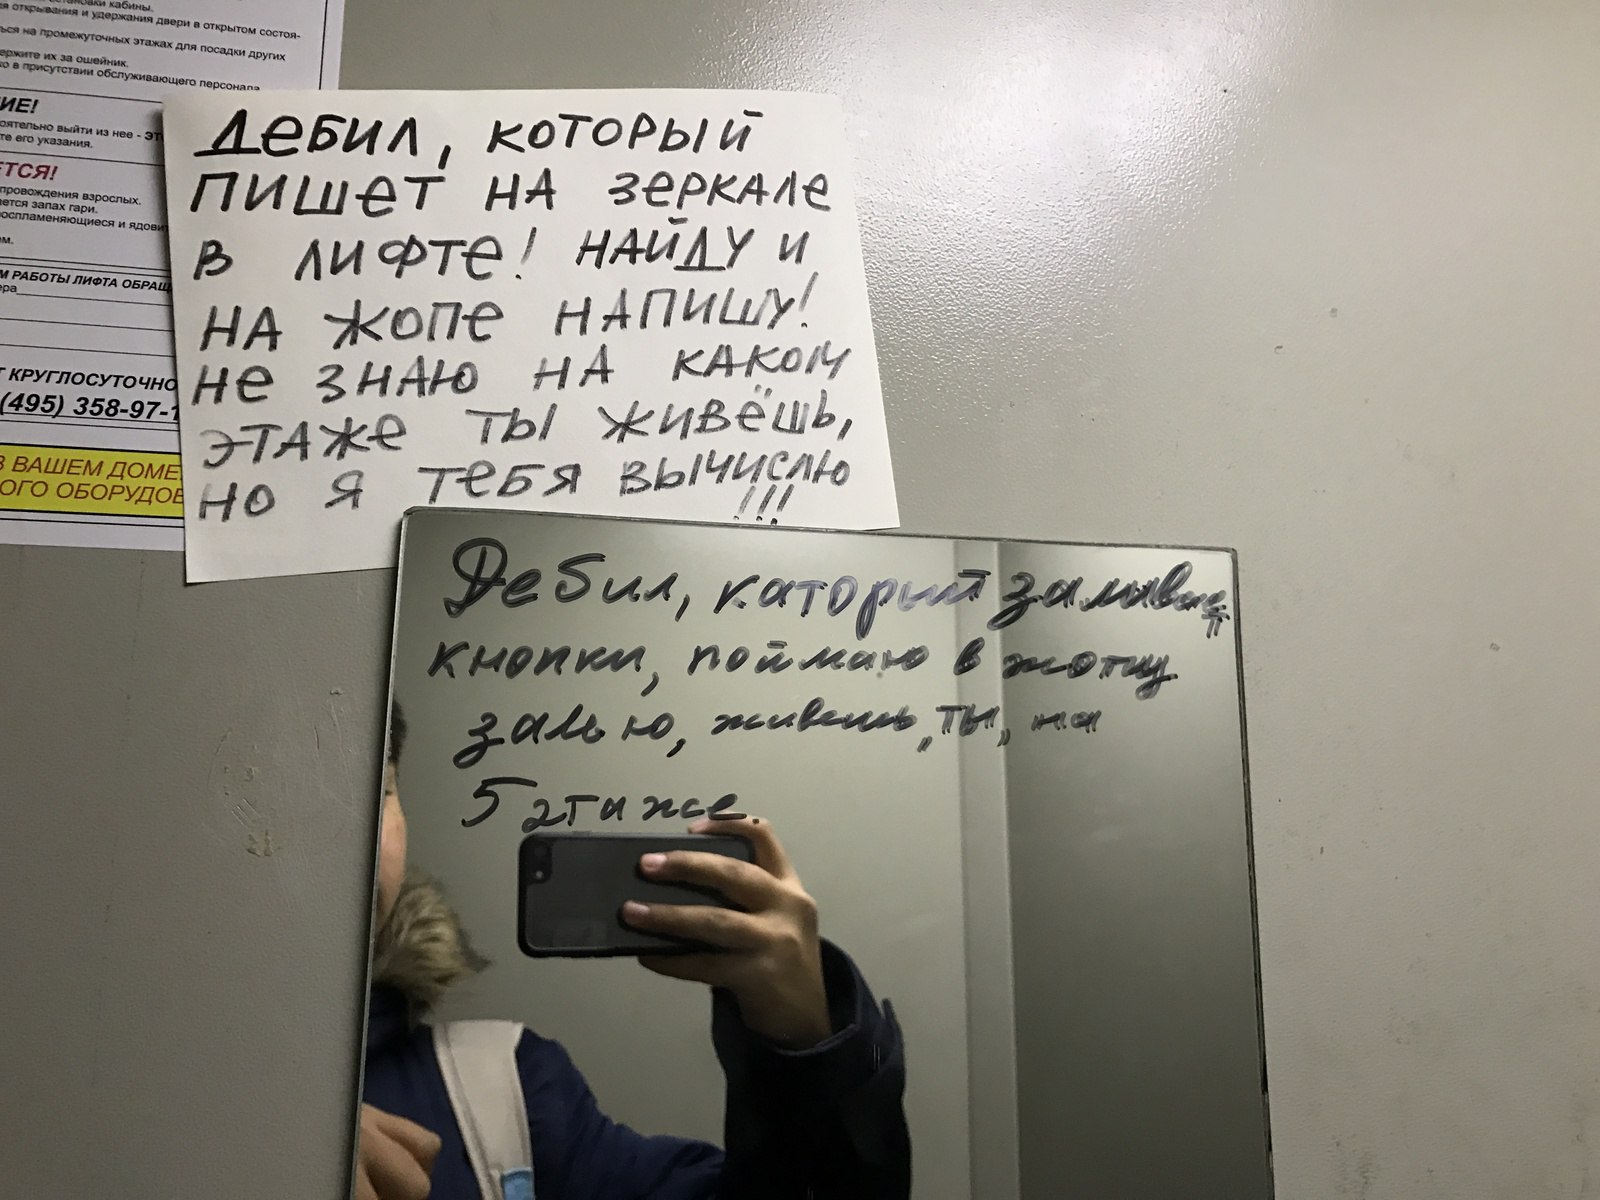 становки кабины.
я открывания и удержания двери в открытом состоя-
ься на промежуточных этажах для посадки других
ержите их за ошейник.
ко в присутствии обслуживающего персонала
ИЕ!
оятельно выйти из нее - ЭТ
те его указания.
ЕТСЯ!
провождения взрослых.
яется запах гари.
оспламеняющиеся и ядовит
ем.
М РАБОТЫ ЛИФТА ОБРАЩ
ера
Т КРУГЛОСУТОЧНО
(495) 358-97-1
В ВАШЕМ ДОМЕ
ОГО ОБОРУДОВ
ДЕБИЛ, КОТОРЫЙ
ПИШЕТ НА ЗЕРКАЛЕ
В ЛИФТЕ! НАЙДУ И
НА ЖОПЕ НАПИШУ!
НЕ ЗНАЮ НА КАКОМ
ЭТАЖЕ ТЫ ЖИВЁШЬ,
НО Я ТЕБЯ ВЫЧИСЛЮ
!!!
Дебил, каторый заливает
кнопки, поймаю в жопу
залью, живешь „ты„ на
5 этаже.